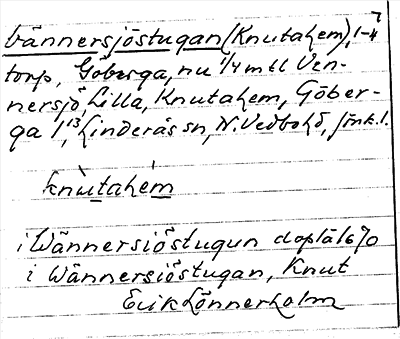 Vännersjöstugan (Knutahem), 1-4
torp, Göberga, nu 1/4 mtl Vän-
nersjö Lilla, Knutahem, Göber-
ga 1¹³, Linderås sn, N. Vedbo hd, Jönk. l.
knutahem
i Wännersiöstugun doplä 1670
i Wännersiöstugan, Knut
Erik Lönnerholm